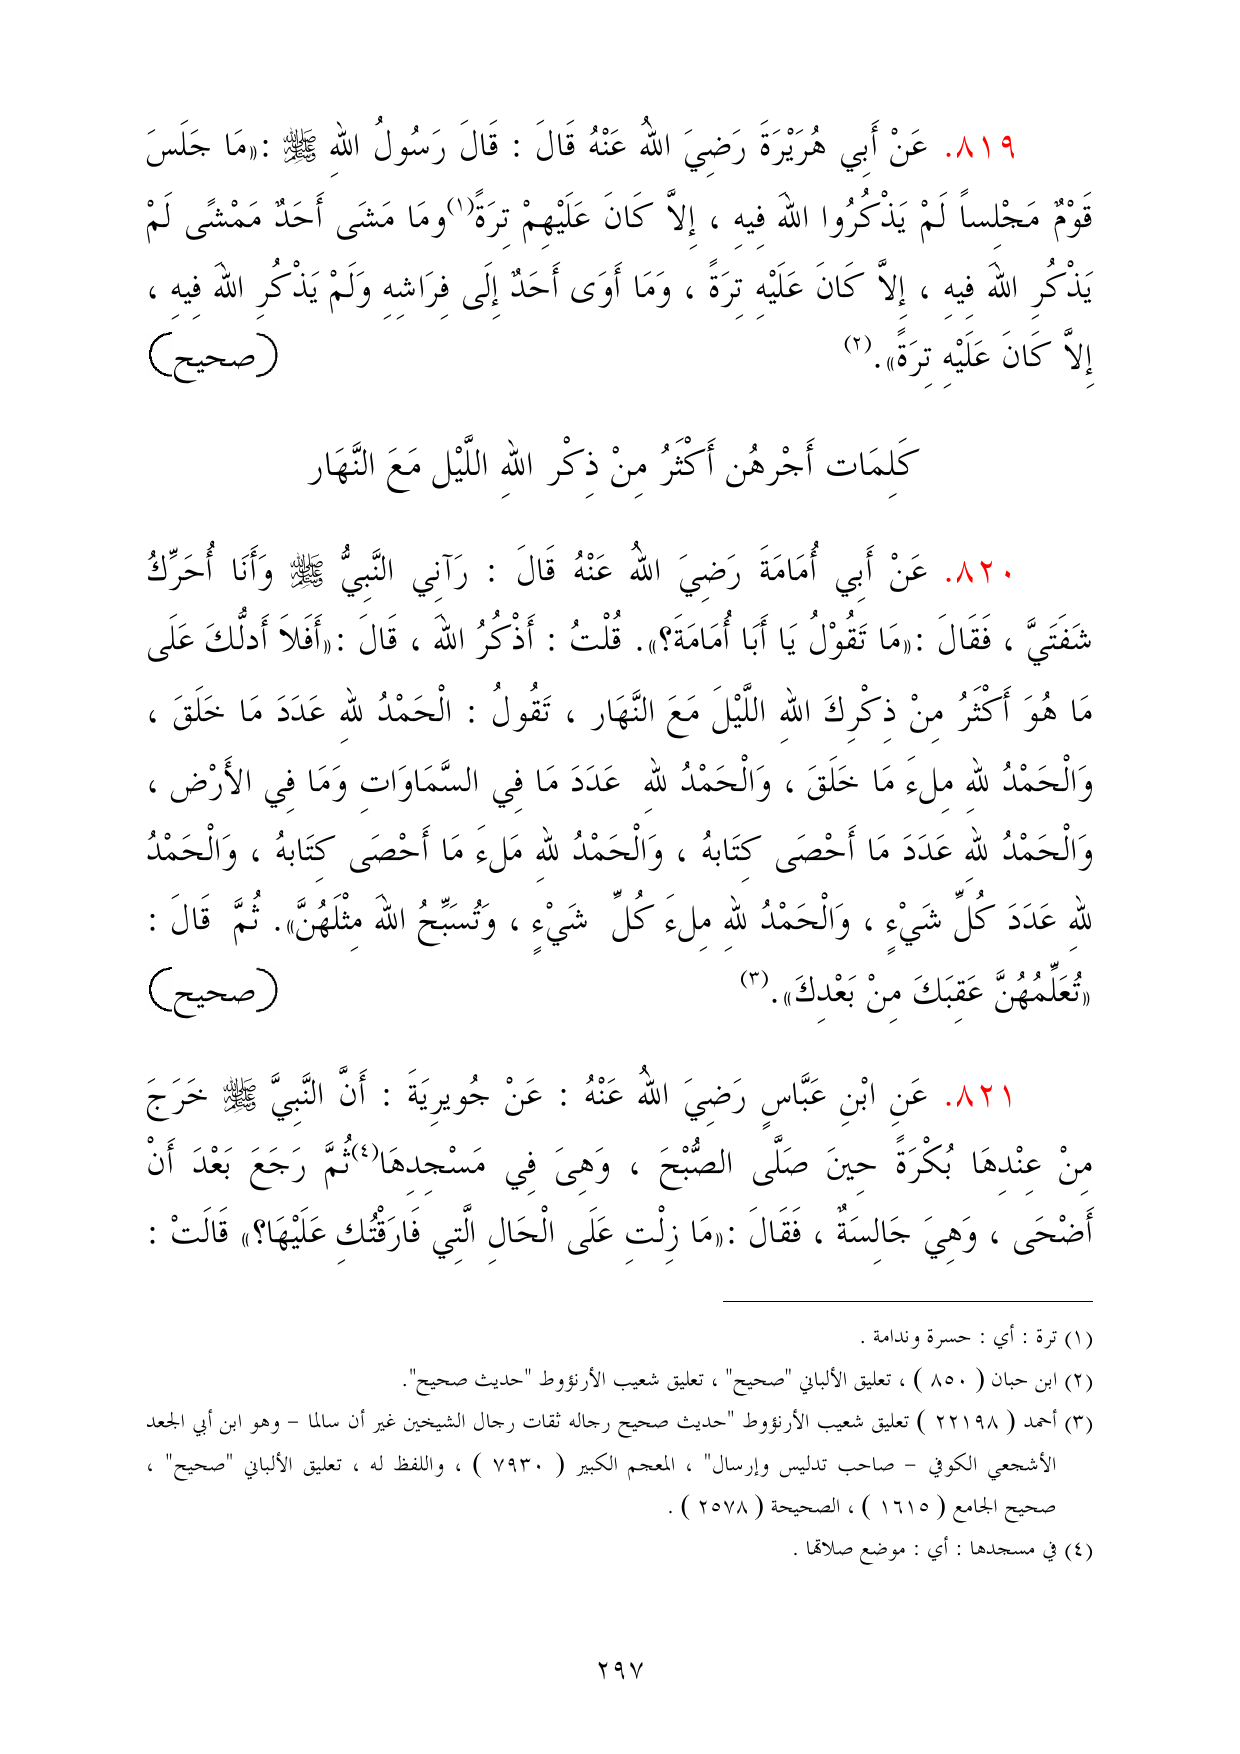 ٨١٩. عَنْ أَبِي هُرَيْرَةَ رَضِيَ اللهُ عَنْهُ قَالَ : قَالَ رَسُولُ اللهِ ﷺ :«مَا جَلَسَ
قَوْمٌ مَجْلِساً لَمْ يَذْكُرُوا اللهَ فِيهِ ، إِلاَّ كَانَ عَلَيْهِمْ تِرَةً(١)ومَا مَشَى أَحَدٌ مَمْشًى لَمْ
يَذْكُرِ اللهَ فِيهِ ، إِلاَّ كَانَ عَلَيْهِ تِرَةً ، وَمَا أَوَى أَحَدٌ إِلَى فِرَاشِهِ وَلَمْ يَذْكُرِ اللهَ فِيهِ ،
إِلاَّ كَانَ عَلَيْهِ تِرَةً».(٢) (صحيح)
كَلِمَات أَجْرهُن أَكْثَرُ مِنْ ذِكْر اللهِ اللَّيْل مَعَ النَّهَار
٨٢٠. عَنْ أَبِي أُمَامَةَ رَضِيَ اللهُ عَنْهُ قَالَ : رَآنِي النَّبِيُّ ﷺ وَأَنَا أُحَرِّكُ
شَفَتَيَّ ، فَقَالَ :«مَا تَقُوْلُ يَا أَبَا أُمَامَةَ؟». قُلْتُ : أَذْكُرُ اللهَ ، قَالَ :«أَفَلاَ أَدلُّكَ عَلَى
مَا هُوَ أَكْثَرُ مِنْ ذِكْرِكَ اللهِ اللَّيْلَ مَعَ النَّهَار ، تَقُولُ : الْحَمْدُ للهِ عَدَدَ مَا خَلَقَ ،
وَالْحَمْدُ للهِ مِلءَ مَا خَلَقَ ، وَالْحَمْدُ للهِ عَدَدَ مَا فِي السَّمَاوَاتِ وَمَا فِي الأَرْضِ ،
وَالْحَمْدُ للهِ عَدَدَ مَا أَحْصَى كِتَابهُ ، وَالْحَمْدُ للهِ مَلءَ مَا أَحْصَى كِتَابهُ ، وَالْحَمْدُ
للهِ عَدَدَ كُلِّ شَيْءٍ ، وَالْحَمْدُ للهِ مِلءَ كُلِّ شَيْءٍ ، وَتُسَبِّحُ اللهَ مِثْلَهُنَّ». ثُمَّ قَالَ :
«تُعَلِّمُهُنَّ عَقِبَكَ مِنْ بَعْدِكَ».(٣) (صحيح)
٨٢١. عَنِ ابْنِ عَبَّاسٍ رَضِيَ اللهُ عَنْهُ : عَنْ جُويرِيَةَ : أَنَّ النَّبِيَّ ﷺ خَرَجَ
مِنْ عِنْدِهَا بُكْرَةً حِينَ صَلَّى الصُّبْحَ ، وَهِىَ فِي مَسْجِدِهَا(٤)ثُمَّ رَجَعَ بَعْدَ أَنْ
أَضْحَى ، وَهِيَ جَالِسَةٌ ، فَقَالَ :«مَا زِلْتِ عَلَى الْحَالِ الَّتِي فَارَقْتُكِ عَلَيْهَا؟» قَالَتْ :
(١) ترة : أي : حسرة وندامة .
(٢) ابن حبان ( ٨٥٠ ) ، تعليق الألباني "صحيح" ، تعليق شعيب الأرنؤوط "حديث صحيح".
(٣) أحمد ( ٢٢١٩٨ ) تعليق شعيب الأرنؤوط "حديث صحيح رجاله ثقات رجال الشيخين غير أن سالما – وهو ابن أبي الجعد
الأشجعي الكوفي – صاحب تدليس وإرسال" ، المعجم الكبير ( ٧٩٣٠ ) ، واللفظ له ، تعليق الألباني "صحيح" ،
صحيح الجامع ( ١٦١٥ ) ، الصحيحة ( ٢٥٧٨ ) .
(٤) في مسجدها : أي : موضع صلاتها .
٢٩٧